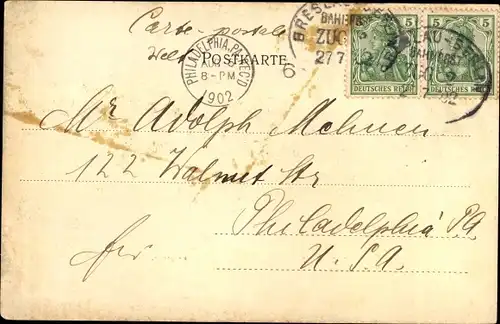 Carte postale
Welt POSTKARTE.
PHILADELPHIA, PA. REC'D
8-PM
1902
BRESLAU
BAHNPOST
ZUG
27 7
5 5
5 5
DEUTSCHES REICH DEUTSCHES REICH
BAHNPOST
Mr Adolph
122 Walnut Str
Philadelphia Pa
U. S. A.